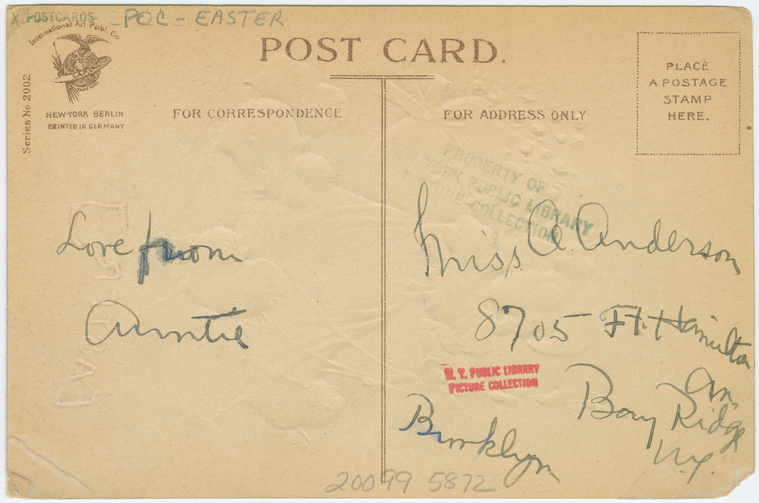 X POSTCARDS - POC - EASTER
International Art Publ. Co
NEW YORK BERLIN
PRINTED IN GERMANY
Series No 2002
POST CARD.
FOR CORRESPONDENCE
FOR ADDRESS ONLY
PLACE
A POSTAGE
STAMP
HERE.
PROPERTY OF
NEW YORK PUBLIC LIBRARY
PICTURE COLLECTION
Love from
Auntie
Miss. A. Anderson
8705 Ft. Hamilton
Av.
Bay Ridge
Brooklyn
N.Y.
N. Y. PUBLIC LIBRARY
PICTURE COLLECTION
20099 5872